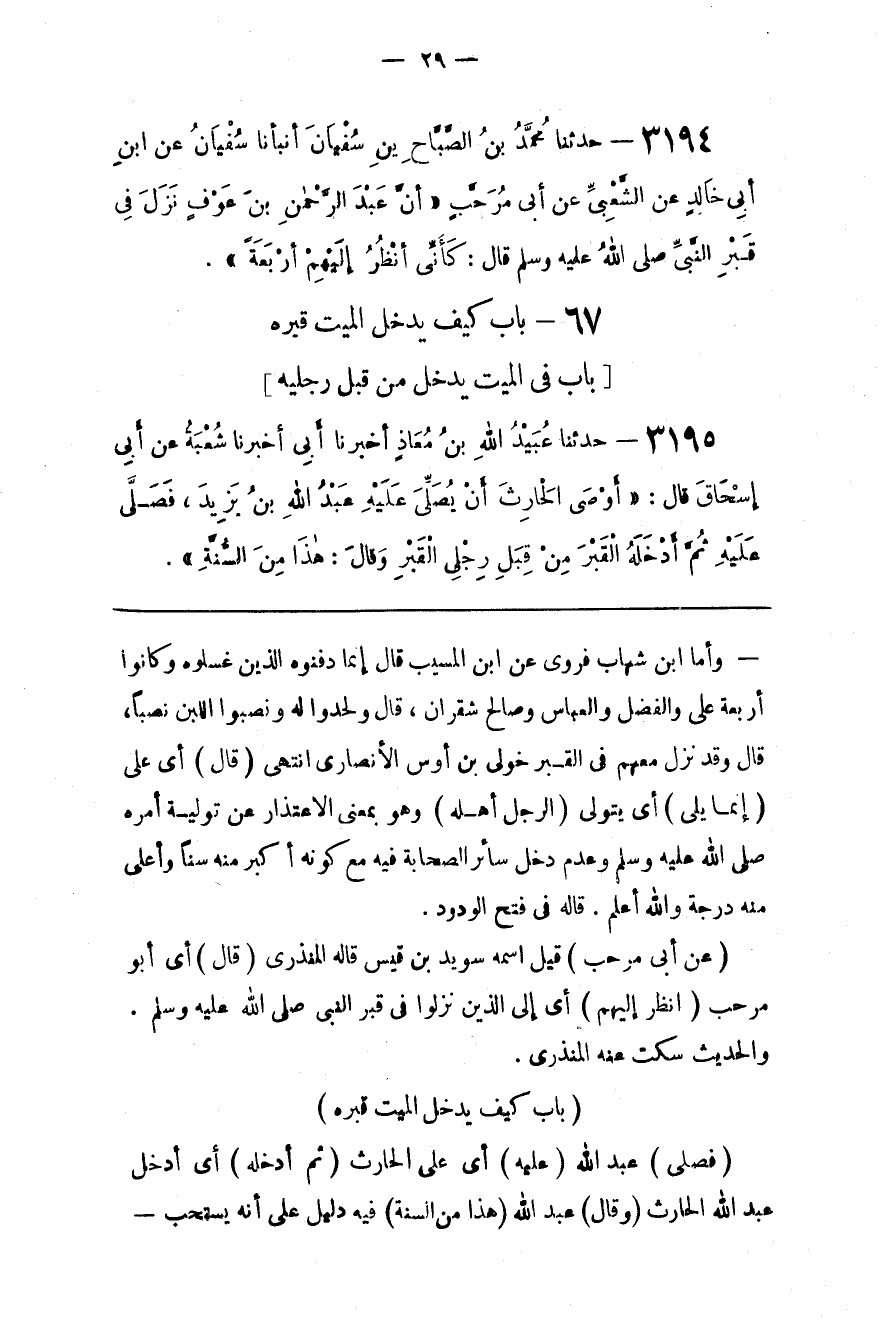 — ٢٩ —
٣١٩٤ – حدثنا مُحمَّدُ بنُ الصَّبَّاحِ بنِ سُفْيَانَ أنبأنا سُفْيَانُ عن ابنِ
أبِى خَالِدٍ عن الشَّعْبِىِّ عن أبى مُرَحَّبٍ « أنَّ عَبْدَ الرَّحْمٰنِ بنَ عَوْفٍ نَزَلَ فِى
قَـبْرِ النَّبىِّ صلى اللهُ عليه وسلم قال : كَأَنِّى أنْظُرُ إلَيْهِمْ أرْبَعَةً » .
٦٧ – باب كيف يدخل الميت قبره
[ باب فى الميت يدخل من قبل رجليه ]
٣١٩٥ – حدثنا عُبَيْدُ اللهِ بنُ مُعَاذٍ أخبرنا أَبِى أخبرنا شُعْبَةُ عن أَبِى
إسْحَاقَ قال : « أَوْصَى الحَارِثَ أَنْ يُصَلِّىَ عَلَيْهِ عَبْدُ اللهِ بنُ يَزِيدَ ، فَصَـلَّى
عَلَيْهِ ثُمَّ أَدْخَلَهُ الْقَبْرَ مِنْ قِبَلِ رِجْلِى الْقَبْرِ وَقالَ : هٰذَا مِنَ السُّنَّةِ » .
— وأما ابن شهاب فروى عن ابن المسيب قال إنما دفنوه الذين غسلوه وكانوا
أربعة على والفضل والعباس وصالح شقران ، قال ولحدوا له ونصبوا اللبن نصباً،
قال وقد نزل معهم فى القـبر خولى بن أوس الأنصارى انتهى ( قال ) أى على
( إنمـا يلى ) أى يتولى ( الرجل أهـله ) وهو بمعنى الاعتذار عن توليـة أمره
صلى الله عليه وسلم وعدم دخل سائر الصحابة فيه مع كونه أكبر منه سناً وأعلى
منه درجة والله أعلم . قاله فى فتح الودود .
( عن أبى مرحب ) قيل اسمه سويد بن قيس قاله المنذرى ( قال ) أى أبو
مرحب ( انظر إليهم ) أى إلى الذين نزلوا فى قبر النبى صلى الله عليه وسلم .
والحديث سكت عنه المنذرى .
( باب كيف يدخل الميت قبره )
( فصلى ) عبد الله ( عليه ) أى على الحارث ( ثم أدخله ) أى أدخل
عبد الله الحارث (وقال) عبد الله (هذا من السنة) فيه دليل على أنه يستحب —